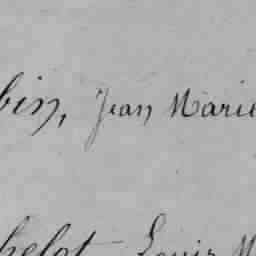 bin, Jean Marie
helot Louis M